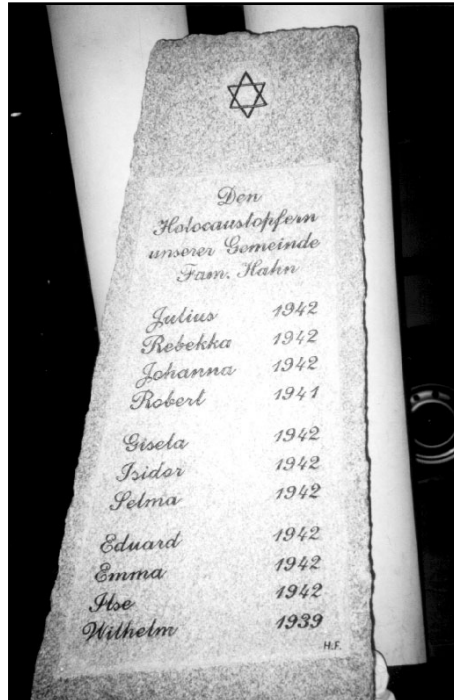 Den
Holocaustopfern
unserer Gemeinde
Fam. Hahn
Julius 1942
Rebekka 1942
Johanna 1942
Robert 1941
Gisela 1942
Isidor 1942
Selma 1942
Eduard 1942
Emma 1942
Ilse 1942
Wilhelm 1939
H.F.